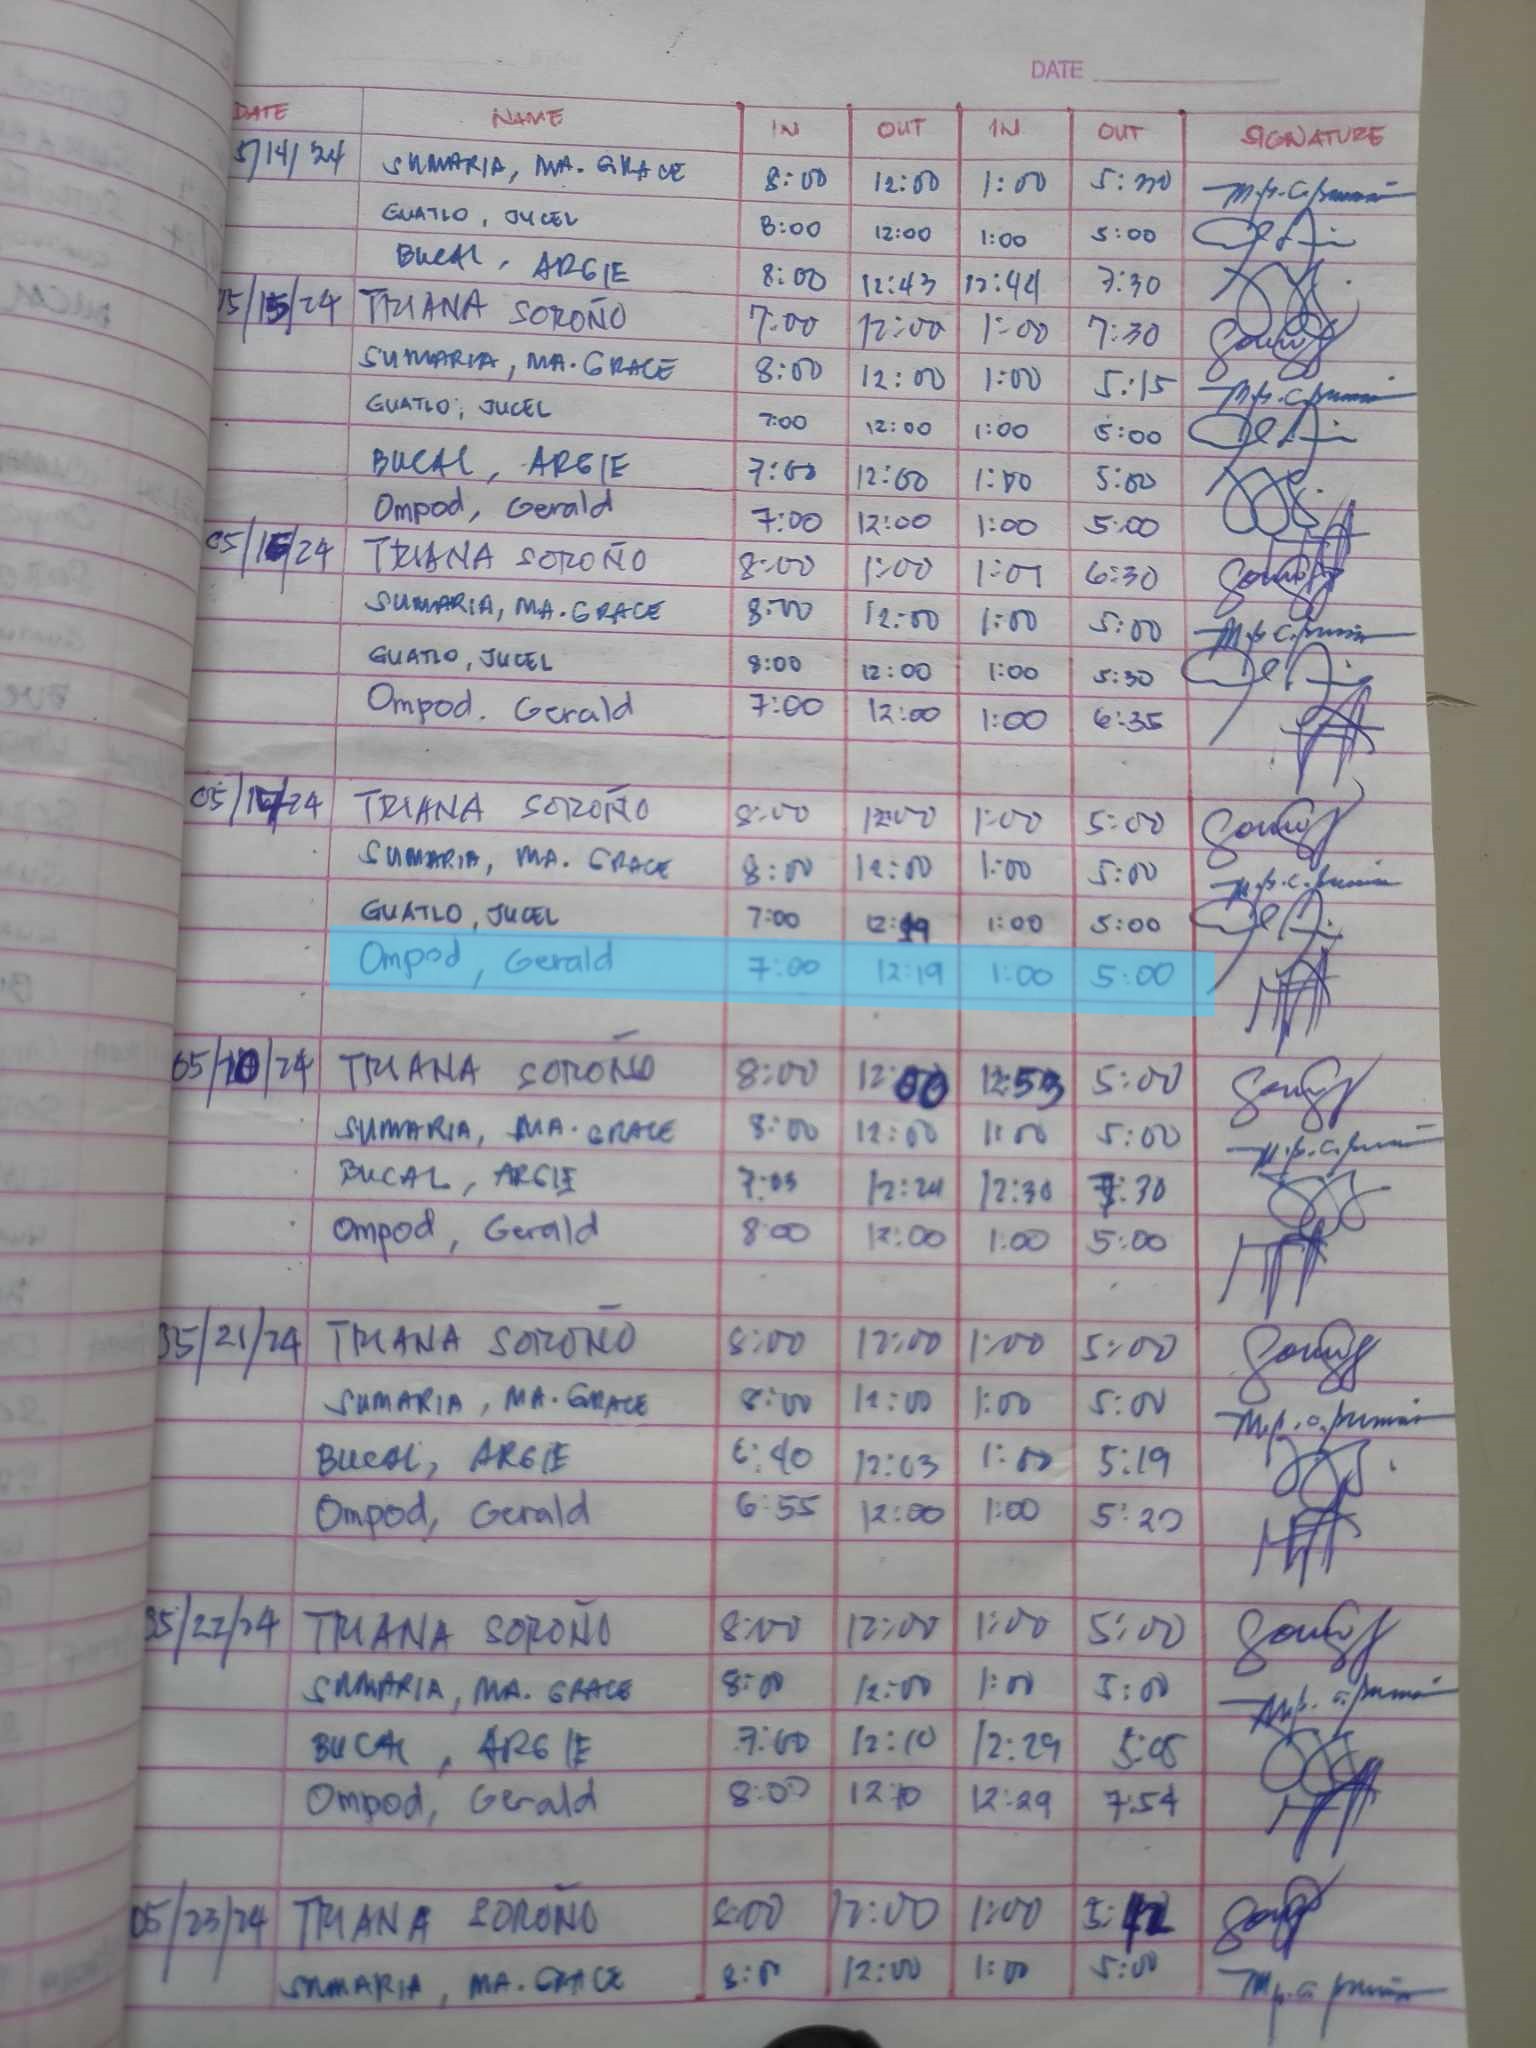 DATE
DATE NAME IN OUT IN OUT SIGNATURE
5/14/24 SUMARIA, MA. GRACE 8:00 12:00 1:00 5:30
GUATLO, JUCEL 8:00 12:00 1:00 5:00
BUCAL, ARGIE 8:00 12:43 12:44 7:30
05/15/24 TRIANA SOROÑO 7:00 12:00 1:00 7:30
SUMARIA, MA. GRACE 8:00 12:00 1:00 5:15
GUATLO, JUCEL 7:00 12:00 1:00 5:00
BUCAL, ARGIE 7:00 12:00 1:00 5:00
Ompod, Gerald 7:00 12:00 1:00 5:00
05/16/24 TRIANA SOROÑO 8:00 1:00 1:01 6:30
SUMARIA, MA. GRACE 8:00 12:00 1:00 5:00
GUATLO, JUCEL 8:00 12:00 1:00 5:30
Ompod. Gerald 7:00 12:00 1:00 6:35
05/17/24 TRIANA SOROÑO 8:00 12:00 1:00 5:00
SUMARIA, MA. GRACE 8:00 12:00 1:00 5:00
GUATLO, JUCEL 7:00 12:19 1:00 5:00
Ompod, Gerald 7:00 12:19 1:00 5:00
05/20/24 TRIANA SOROÑO 8:00 12:00 12:53 5:00
SUMARIA, MA. GRACE 8:00 12:00 1:00 5:00
BUCAL, ARGIE 7:03 12:24 12:30 7:30
Ompod, Gerald 8:00 12:00 1:00 5:00
05/21/24 TRIANA SOROÑO 8:00 12:00 1:00 5:00
SUMARIA, MA. GRACE 8:00 12:00 1:00 5:00
BUCAL, ARGIE 6:40 12:03 1:00 5:19
Ompod, Gerald 6:55 12:00 1:00 5:20
05/22/24 TRIANA SOROÑO 8:00 12:00 1:00 5:00
SUMARIA, MA. GRACE 8:00 12:00 1:00 5:00
BUCAL, ARGIE 7:00 12:10 12:29 5:05
Ompod, Gerald 8:00 12:10 12:29 7:54
05/23/24 TRIANA SOROÑO 8:00 12:00 1:00 5:12
SUMARIA, MA. GRACE 8:00 12:00 1:00 5:00